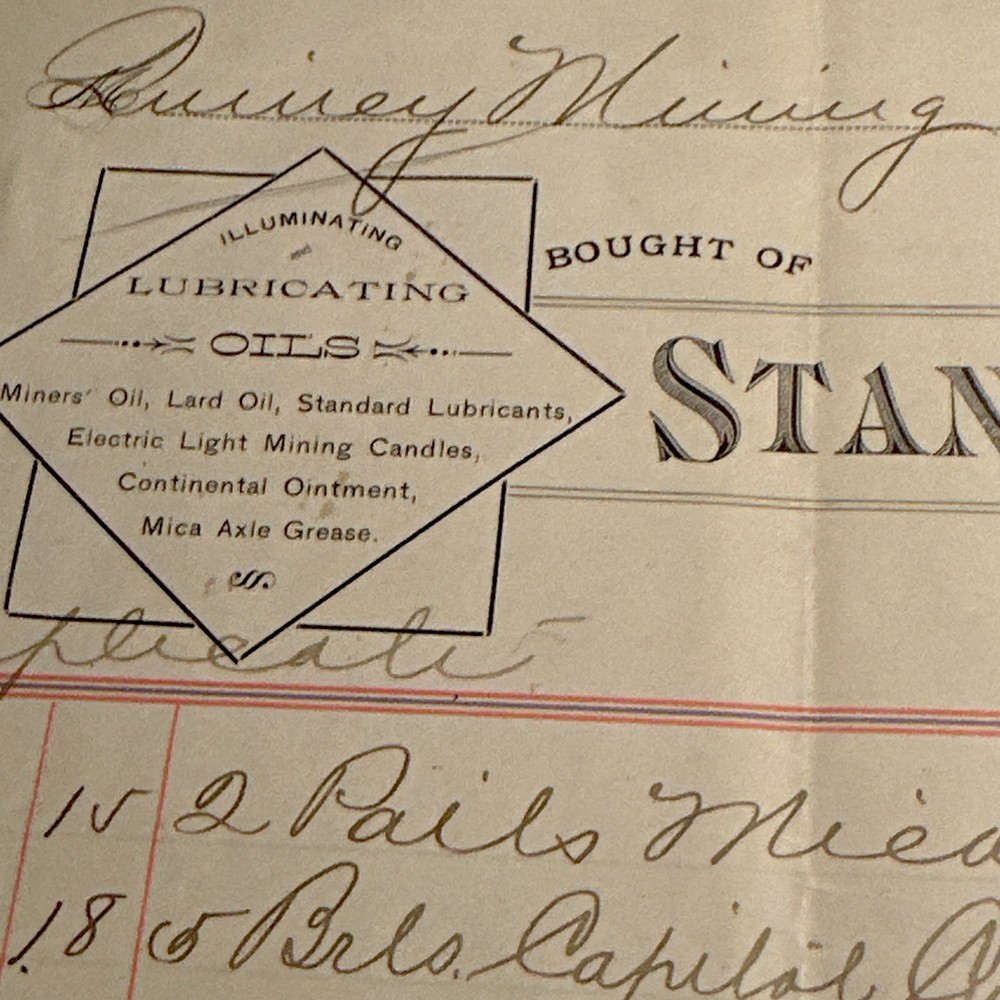 Quincy Mining
ILLUMINATING
and
LUBRICATING
OILS
Miners' Oil, Lard Oil, Standard Lubricants,
Electric Light Mining Candles,
Continental Ointment,
Mica Axle Grease.
BOUGHT OF
STAN
plicate
15 2 Pails Mica
18 5 Brls. Capitol